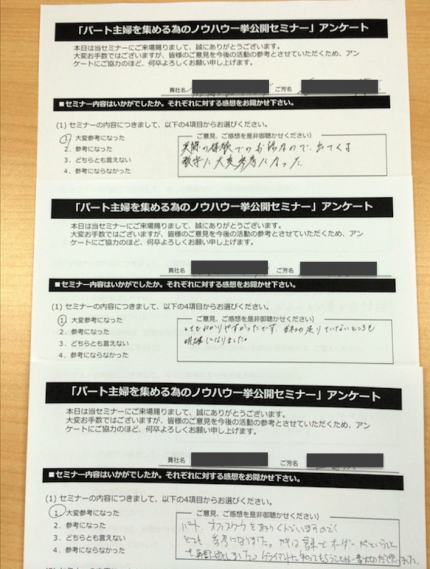 「パート主婦を集める為のノウハウ一挙公開セミナー」アンケート
本日は当セミナーにご来場賜りまして、誠にありがとうございます。
大変お手数ではございますが、皆様のご意見を今後の活動の参考とさせていただくため、アン
ケートにご協力のほど、何卒よろしくお願い申し上げます。
貴社名 ご芳名
■セミナー内容はいかがでしたか。それぞれに対する感想をお聞かせ下さい。
(1) セミナーの内容につきまして、以下の4項目からお選びください。
1. 大変参考になった
2. 参考になった
3. どちらとも言えない
4. 参考にならなかった
ご意見、ご感想を是非御聴かせください
実際の体験でのお話なので、出てくる
数字に大変参考になった。
「パート主婦を集める為のノウハウ一挙公開セミナー」アンケート
本日は当セミナーにご来場賜りまして、誠にありがとうございます。
大変お手数ではございますが、皆様のご意見を今後の活動の参考とさせていただくため、アン
ケートにご協力のほど、何卒よろしくお願い申し上げます。
貴社名 ご芳名
■セミナー内容はいかがでしたか。それぞれに対する感想をお聞かせ下さい。
(1) セミナーの内容につきまして、以下の4項目からお選びください。
1. 大変参考になった
2. 参考になった
3. どちらとも言えない
4. 参考にならなかった
ご意見、ご感想を是非御聴かせください
とてもわかりやすかったです。 足りていないところも
明確になりました。
「パート主婦を集める為のノウハウ一挙公開セミナー」アンケート
本日は当セミナーにご来場賜りまして、誠にありがとうございます。
大変お手数ではございますが、皆様のご意見を今後の活動の参考とさせていただくため、アン
ケートにご協力のほど、何卒よろしくお願い申し上げます。
貴社名 ご芳名
■セミナー内容はいかがでしたか。それぞれに対する感想をお聞かせ下さい。
(1) セミナーの内容につきまして、以下の4項目からお選びください。
1. 大変参考になった
2. 参考になった
3. どちらとも言えない
4. 参考にならなかった
ご意見、ご感想を是非御聴かせください
パート
とても参考になりました。 オーダー